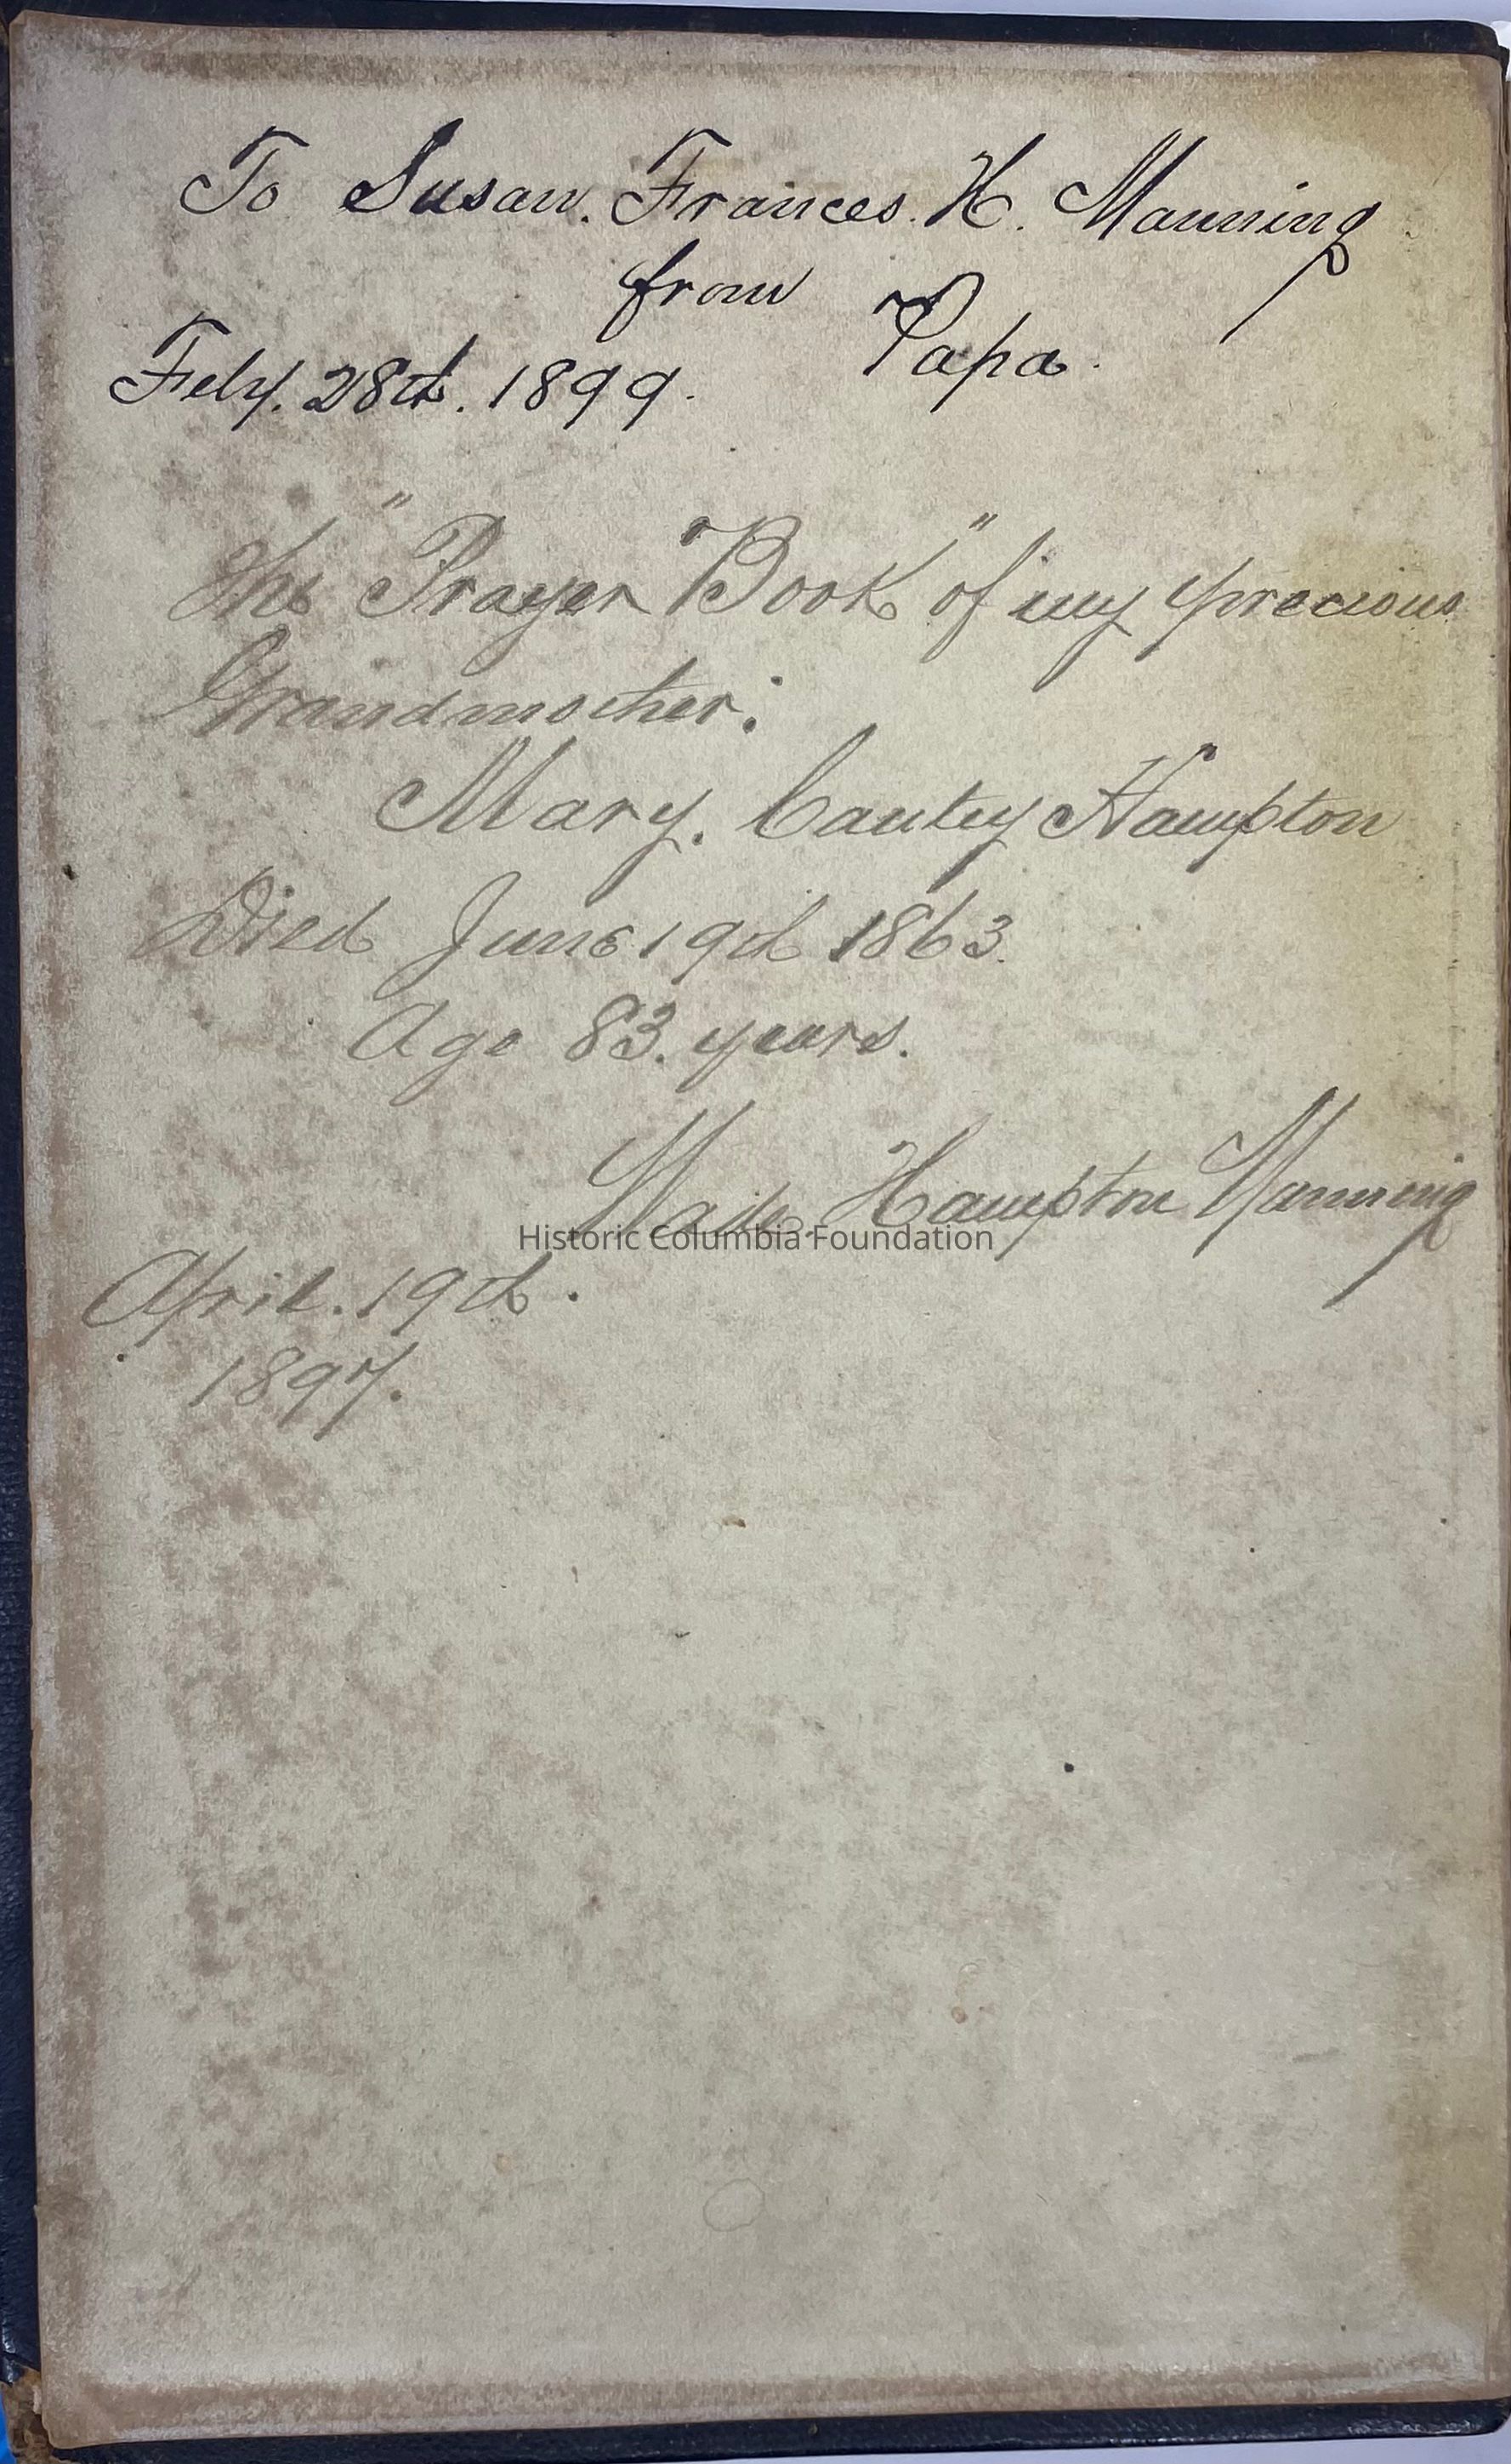 To Susan. Frances. H. Manning
from
Papa.
Feby. 28th. 1899.
The "Prayer Book" of my precious
Grandmother:
Mary. Cantey Hampton
Died June 19th 1863.
Age 83. years.
Wade Hampton Manning
Historic Columbia Foundation
April. 19th.
1897.